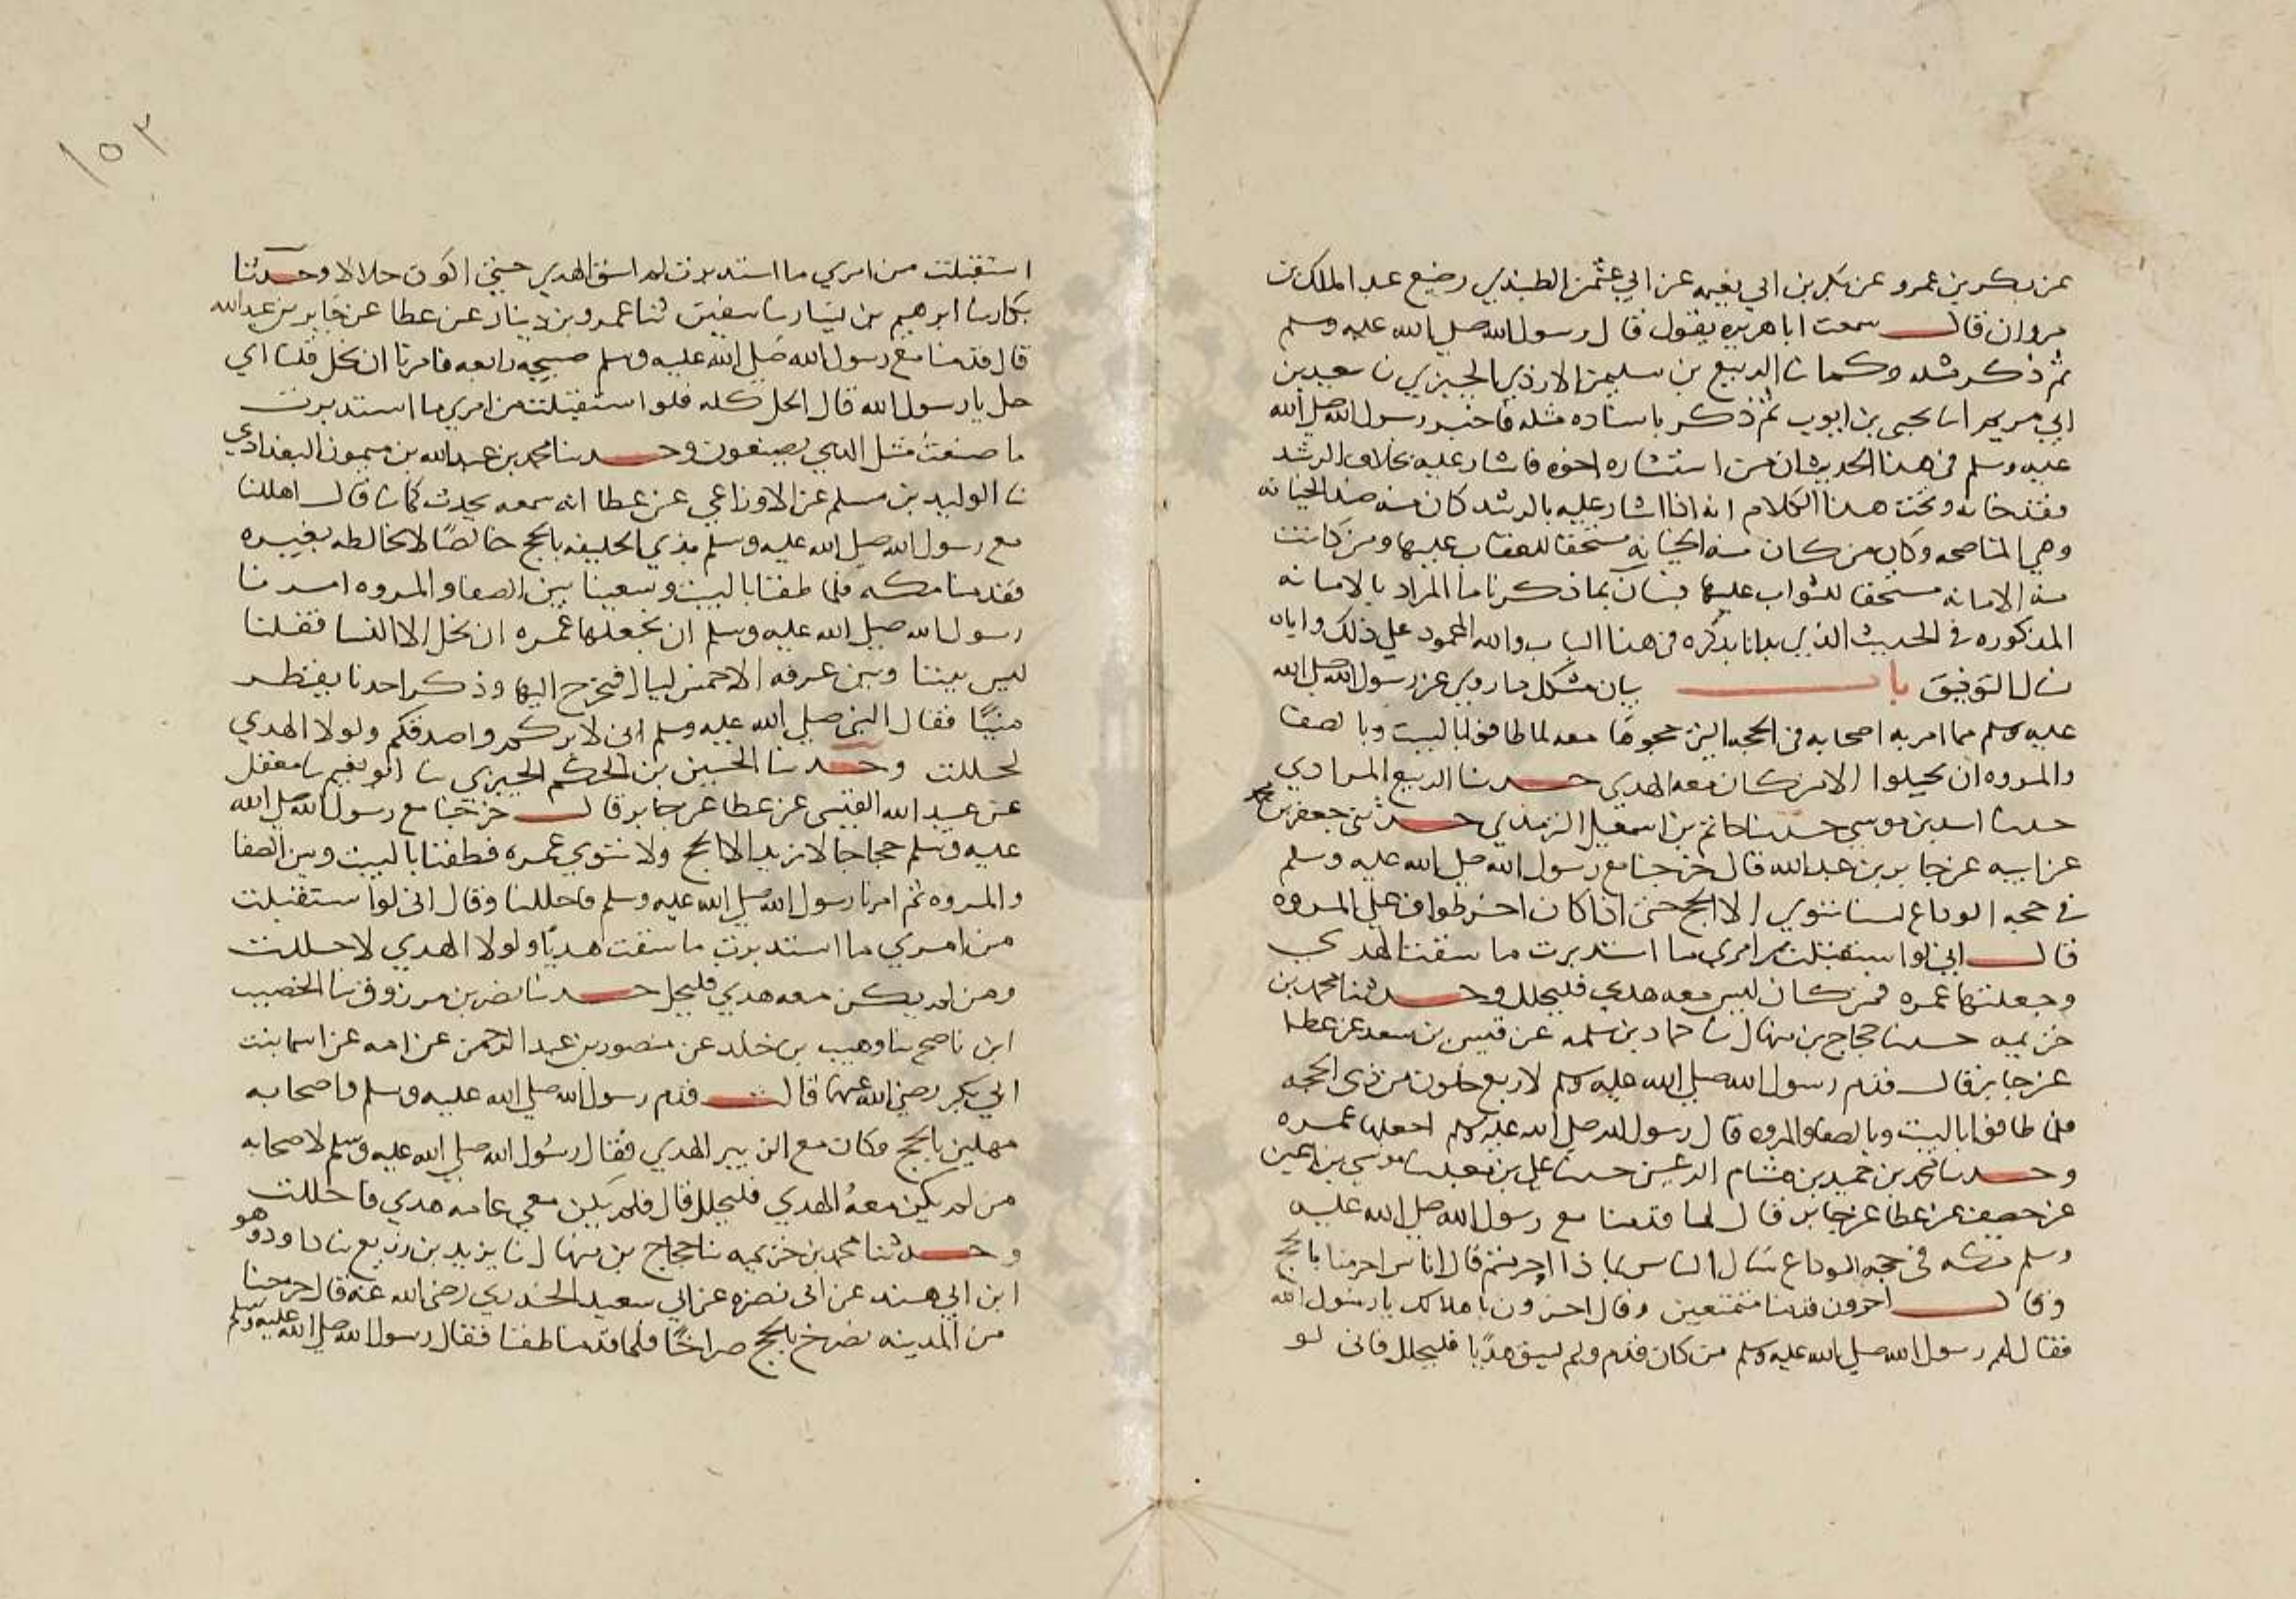 عن بكر بن عمرو عن بكر بن ابي نعيمه عن ابي عثمن الطنبذي رضيع عبد الملك بن
مروان قال سمعت ابا هريره يقول قال رسول الله صلي الله عليه وسلم
ثم ذكر مثله وكما نا الربيع بن سليمن الازدي الجيزي نا سعيد بن
ابي مريم انا يحيي بن ايوب ثم ذكر باسناده مثله فاخبر رسول الله صلي الله
عليه وسلم في هذا الحديث ان من استشاره اخوه فاشار عليه بخلاف الرشد
فقد خانه وتحت هذا الكلام انه اذا اشار عليه بالرشد كان منه ضد الخيانه
وهي المناصحه وكان من كان منه الخيانه مستحقا للعقاب عليها ومن كانت
منه الامانه مستحقا للثواب عليها فبان بما ذكرنا ما المراد بالامانه
المذكوره في الحديث الذي بدانا بذكره في هذا الباب والله المحمود علي ذلك واياه
نسال التوفيق باب بيان مشكل ما روي عن رسول الله صلي الله
عليه وسلم مما امر به اصحابه في الحجه التي حجوها معه لما طافوا بالبيت وبالصفا
والمروه ان يحلوا الا من كان معه الهدي حدثنا الربيع المرادي
حدثنا اسد بن موسي حدثنا حاتم بن اسمعيل المدني حدثني جعفر بن محمد
عن ابيه عن جابر بن عبد الله قال خرجنا مع رسول الله صلي الله عليه وسلم
في حجه الوداع لسنا ننوي الا الحج حتي اذا كان اخر طواف علي المروه
قال اني لو استقبلت من امري ما استدبرت ما سقت الهدي
وجعلتها عمره فمن كان ليس معه هدي فليحلل وحدثنا محمد بن
خزيمه حدثنا حجاج بن منهال نا حماد بن سلمه عن قيس بن سعد عن عطا
عن جابر قال قدم رسول الله صلي الله عليه وسلم لاربع خلون من ذي الحجه
فلما طافوا بالبيت وبالصفا والمروه قال رسول الله صلي الله عليه وسلم اجعلوها عمره
وحدثنا محمد بن حميد بن هشام الرعيني حدثنا علي بن معبد نا موسي بن اعين
عن خصيف عن عطا عن جابر قال لما قدمنا مع رسول الله صلي الله عليه
وسلم مكه في حجه الوداع سال الناس بماذا احرمتم قال اناس احرمنا بالحج
وقال اخرون قدمنا متمتعين وقال اخرون باهلالك يا رسول الله
فقال لهم رسول الله صلي الله عليه وسلم من كان قدم ولم يسق هديا فليحلل فاني لو
استقبلت من امري ما استدبرت لم اسق الهدي حتي اكون حلالا وحدثنا
بكار نا ابرهيم بن بشار نا سفين ثنا عمرو بن دينار عن عطا عن جابر بن عبد الله
قال قدمنا مع رسول الله صلي الله عليه وسلم صبيحه رابعه فامرنا ان نحل قلنا اي
حل يا رسول الله قال الحل كله فلو استقبلت من امري ما استدبرت
ما صنعت مثل الذي يصنعون وحدثنا محمد بن عبد الله بن ميمون البغدادي
نا الوليد بن مسلم عن الاوزاعي عن عطا انه سمعه يحدث كما نا قال اهللنا
مع رسول الله صلي الله عليه وسلم بذي الحليفه بالحج خالصًا لا نخالطه بغيره
فقدمنا مكه فلما طفنا بالبيت وسعينا بين الصفا والمروه امرنا
رسول الله صلي الله عليه وسلم ان نجعلها عمره ان نحل الا النسا فقلنا
ليس بيننا وبين عرفه الا خمس ليال فنخرج اليها وذكر احدنا يقطر
منيًا فقال النبي صلي الله عليه وسلم اني لابركم واصدقكم ولولا الهدي
لحللت وحدثنا الحسين بن الحكم الجيزي نا ابو نعيم نا معقل
عن عبيد الله القيسي عن عطا عن جابر قال خرجنا مع رسول الله صلي الله
عليه وسلم حجاجا لا نريد الا الحج ولا ننوي عمره فطفنا بالبيت وبين الصفا
والمروه ثم امرنا رسول الله صلي الله عليه وسلم فاحللنا وقال اني لو استقبلت
من امري ما استدبرت ما سقت هديًا ولولا الهدي لاحللت
ومن لم يكن معه هدي فليحل حدثنا نصر بن مرزوق نا الخصيب
ابن ناصح نا وهيب بن خلد عن منصور بن عبد الرحمن عن امه عن اسما بنت
ابي بكر رضي الله عنها قالت قدم رسول الله صلي الله عليه وسلم واصحابه
مهلين بالحج وكان مع الزبير الهدي فقال رسول الله صلي الله عليه وسلم لاصحابه
من لم يكن معهُ الهدي فليحلل قال فلم يكن معي عامه هدي فاحللت
وحدثنا محمد بن خزيمه نا حجاج بن منهال نا يزيد بن زريع نا داود وهو
ابن ابي هند عن ابي نضره عن ابي سعيد الخدري رضي الله عنه قال خرجنا
من المدينه نصرخ بالحج صراخًا فلما قدمنا طفنا فقال رسول الله صلي الله عليه وسلم
١٥٣